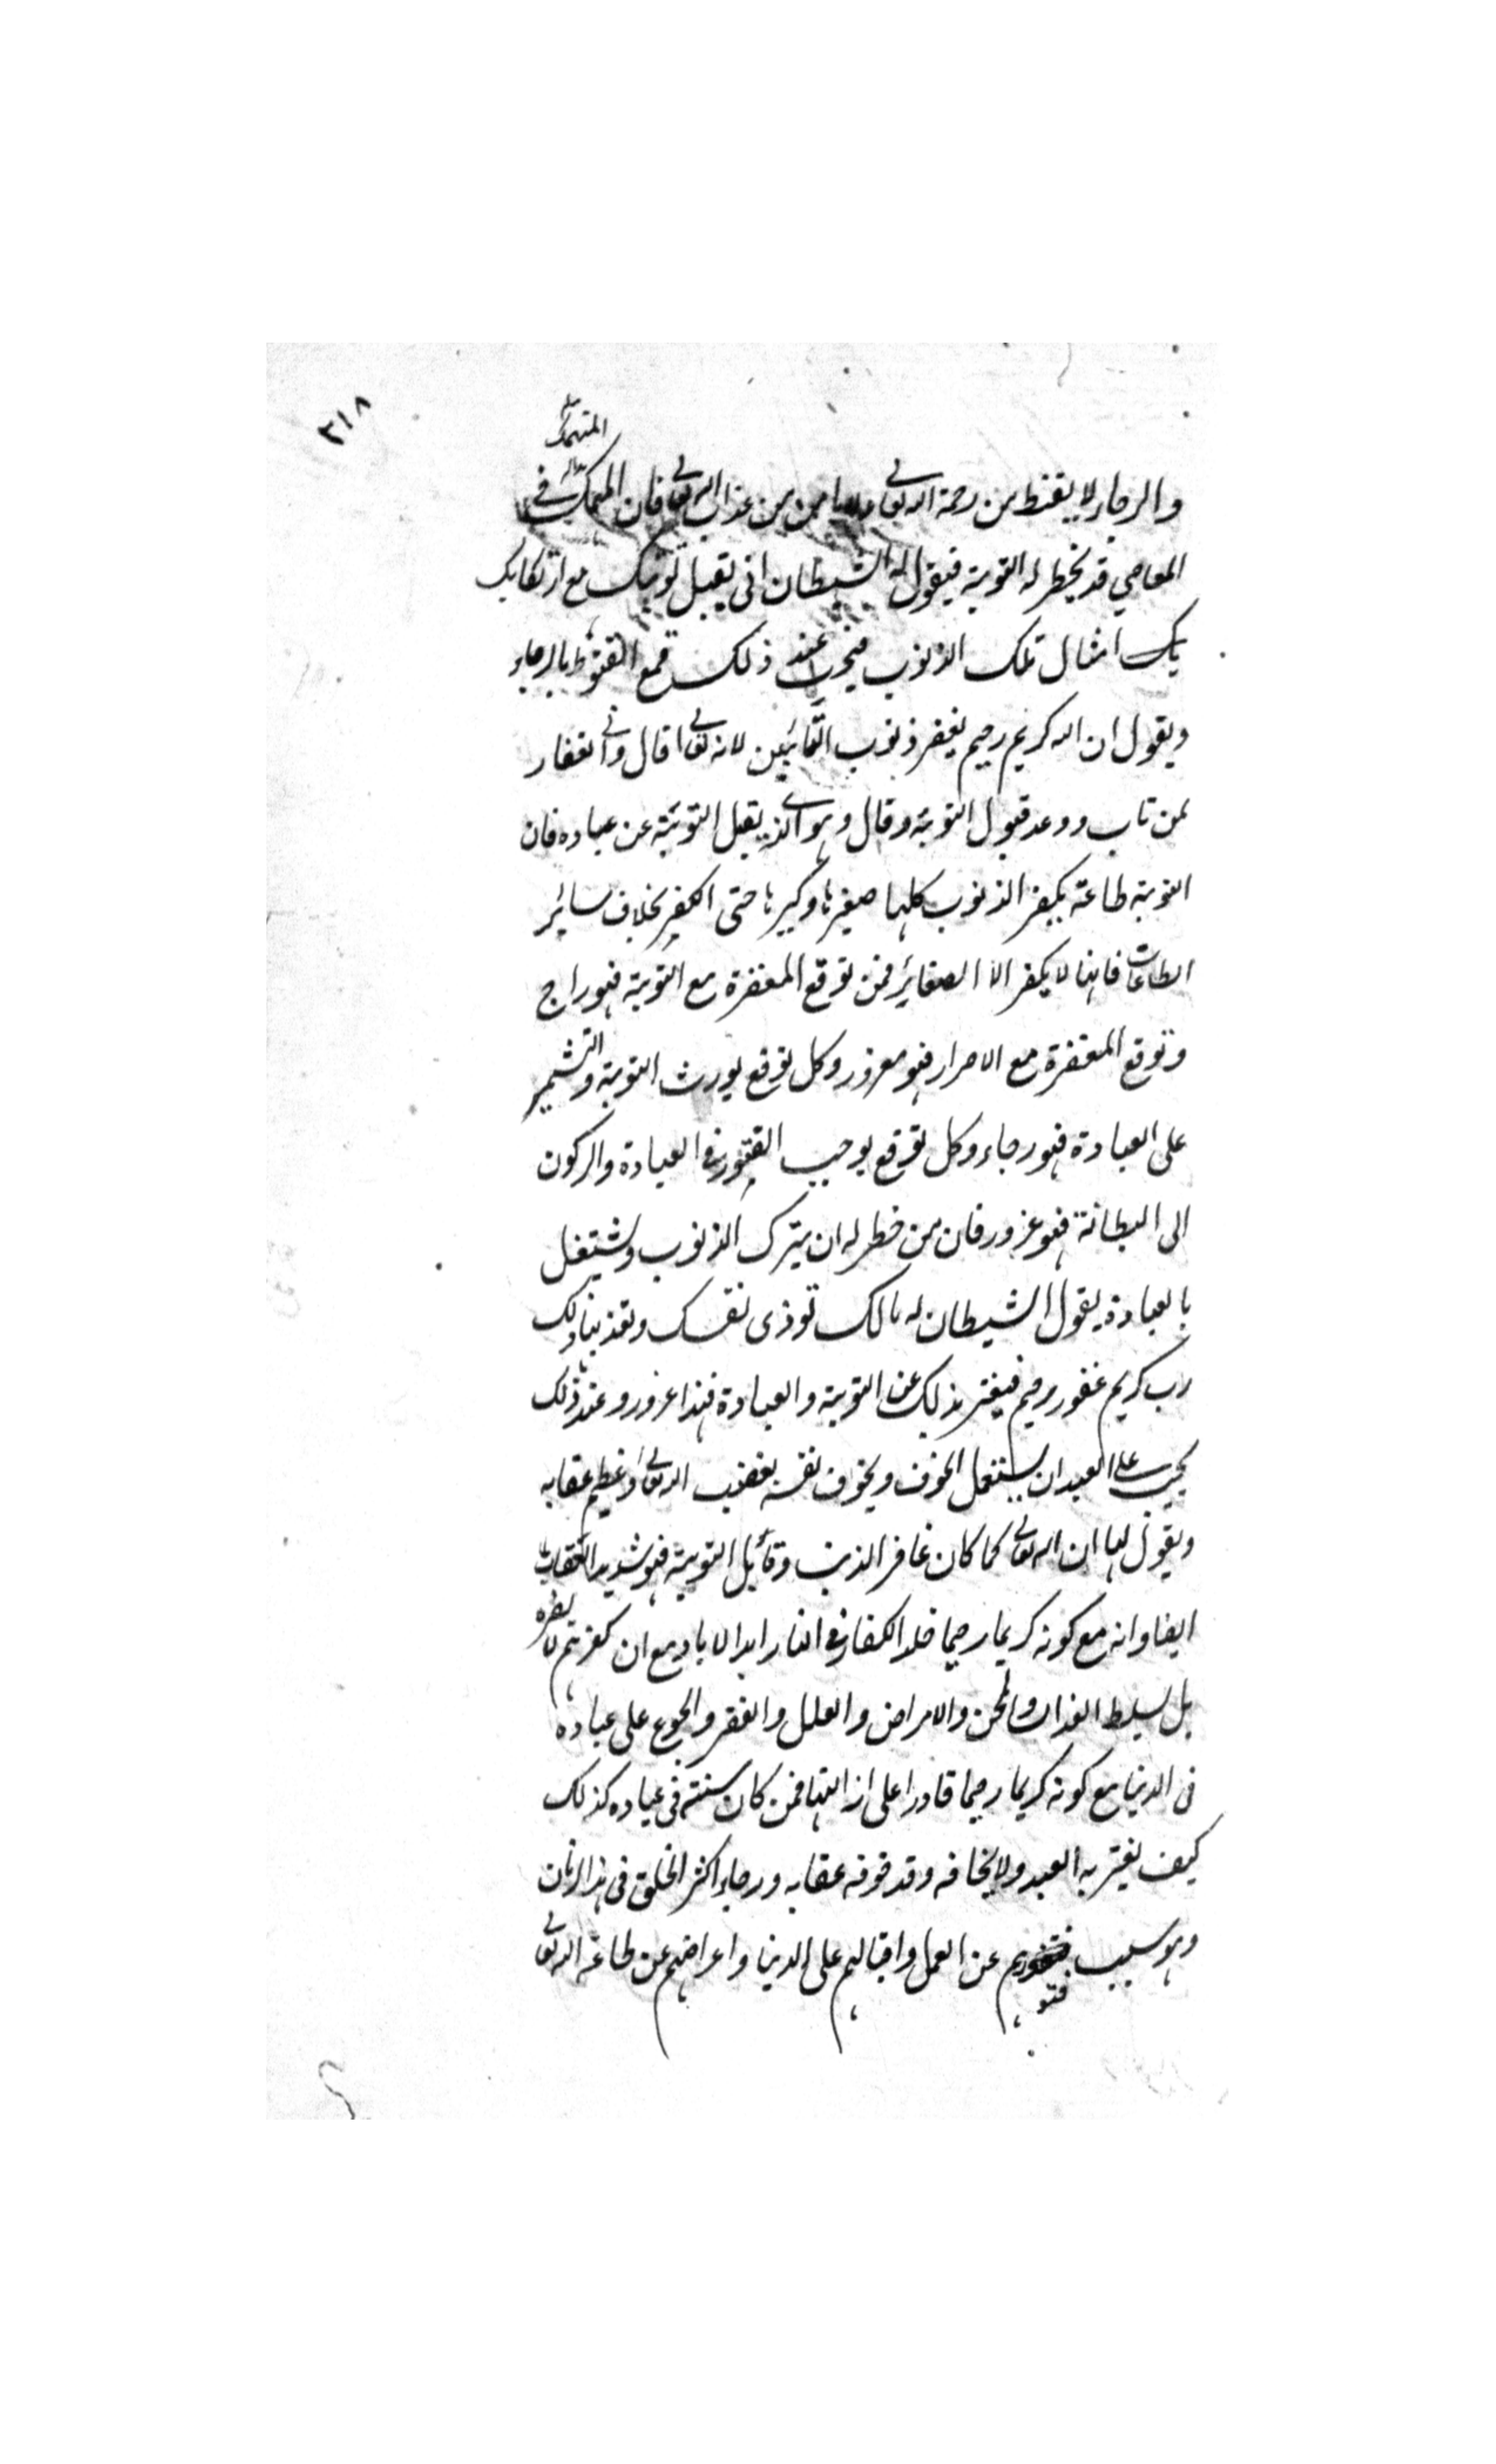 ٣١٨
المنهمك
والرجاء لا يقنط من رحمة الله تعالى ولا يأمن من عذاب الله تعالى فان المنهمك في
المعاصي قد يخطر له التوبة فيقول له الشيطان انى يقبل توبتك مع ارتكابك
امثال تلك الذنوب فيجب عند ذلك قمع القنوط بالرجاء
ويقول ان الله كريم رحيم يغفر ذنوب التائبين لانه تعالى قال وانى لغفار
لمن تاب ووعد قبول التوبة وقال وهو الذي يقبل التوبة عن عباده فان
التوبة طاعة يكفر الذنوب كلها صغيرها وكبيرها حتى الكفر بخلاف سائر
الطاعات فانها لا يكفر الا الصغائر فمن توقع المغفرة مع التوبة فهو راج
وتوقع المغفرة مع الاصرار فهو مغرور وكل توقع يورث التوبة والتشمير
على العبادة فهو رجاء وكل توقع يوجب الفتور في العبادة والركون
الى البطالة فهو غرور فان من خطر له ان يترك الذنوب ويشتغل
بالعبادة يقول الشيطان له مالك توذى نفسك وتعذبها ولك
رب كريم غفور رحيم فيفتر بذلك عن التوبة والعبادة فهذا غرور وعند ذلك
يجب على العبد ان يستعمل الخوف ويخوف نفسه بغضب الله تعالى وعظيم عقابه
ويقول لها ان الله تعالى كما كان غافر الذنب وقابل التوبة فهو شديد العقاب
ايضا وانه مع كونه كريما رحيما خلد الكفار في النار ابد الاباد مع ان كفرهم لا يضره
بل سلط العذاب والمحن والامراض والعلل والفقر والجوع على عباده
فى الدنيا مع كونه كريما رحيما قادرا على ازالتها فمن كان سنته في عباده كذلك
كيف يغتر به العبد ولا يخافه وقد خوفه عقابه ورجاء اكثر الخلق في هذا الزمان
وهو سبب فتورهم عن العمل واقبالهم على الدنيا واعراضهم عن طاعة الله تعالى